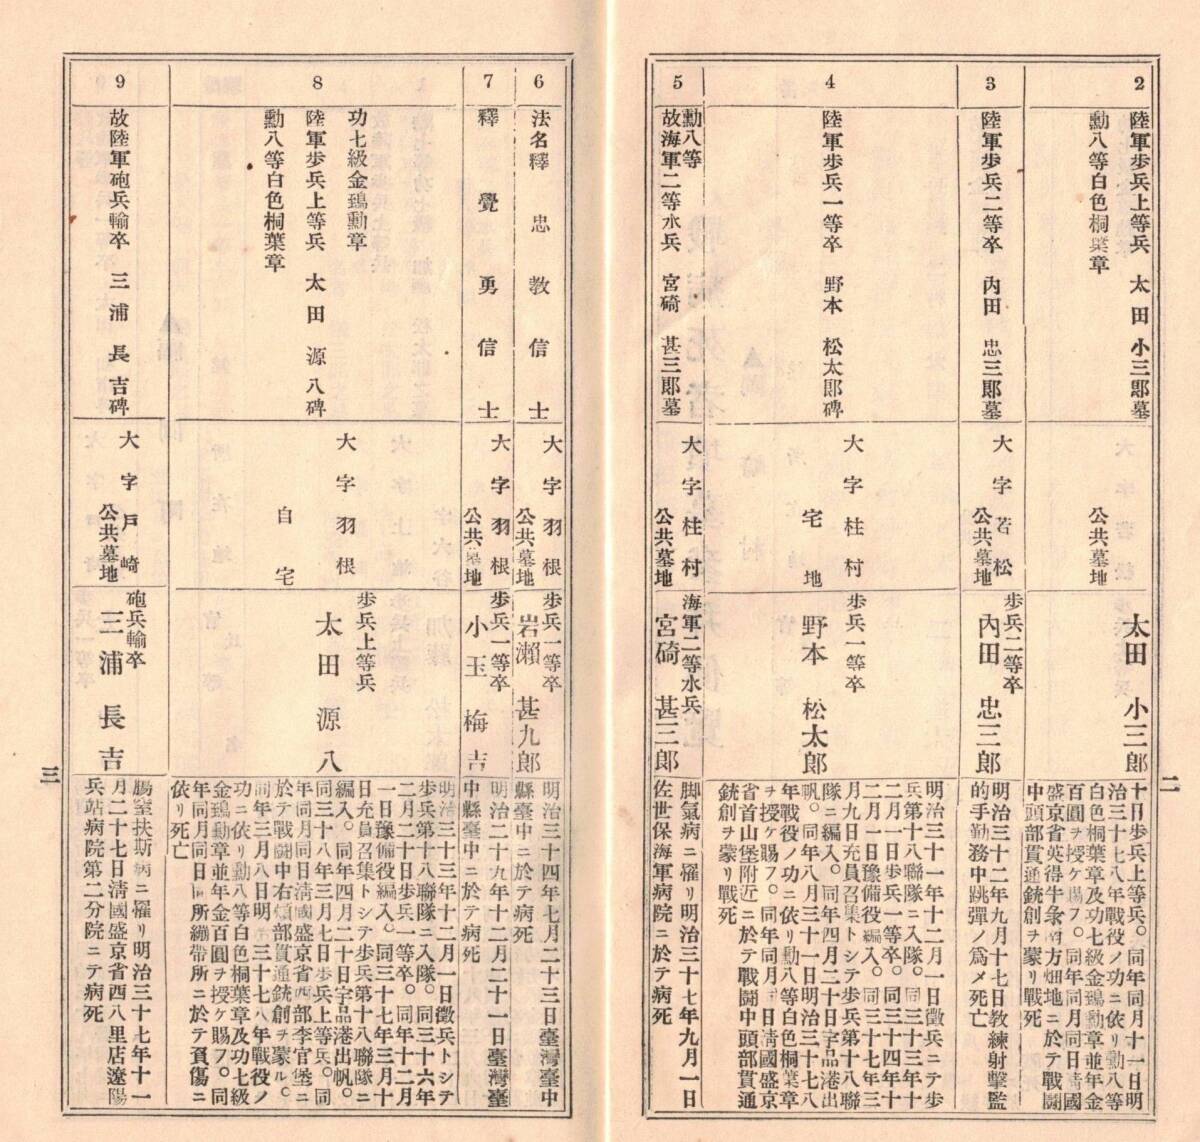 2
陸軍歩兵上等兵 太田小三郎墓
勳八等白色桐葉章
公共墓地
太田 小三郎
十日歩兵上等兵。同年同月十一日明
治三十七八年戰役ノ功ニ依リ勳八等
白色桐葉章及功七級金鵄勳章並年金
百圓ヲ授ケ賜フ。同年同月同日淸國
盛京省英得牛彔南方畑地ニ於テ戰鬪
中頭部貫通銃創ヲ蒙リ戰死
3
陸軍歩兵二等卒 內田 忠三郎墓
大字若松
公共墓地
歩兵二等卒
內田 忠三郎
明治三十二年九月十七日教練射擊監
的手勤務中跳彈ノ爲メ死亡
4
陸軍歩兵一等卒 野本 松太郎碑
大字柱村
宅地
歩兵一等卒
野本 松太郎
明治三十一年十二月一日徵兵ニテ歩
兵第十八聯隊ニ入隊。同三十三年十
二月一日歩兵一等卒。同三十四年十
二月一日豫備役編入。同三十七年三
月九日充員召集トシテ歩兵第十八聯
隊ニ編入。同年四月二十日宇品港出
帆。同年八月三十一日明治三十七八
年戰役ノ功ニ依リ勳八等白色桐葉章
ヲ授ケ賜フ。同年同月同日淸國盛京
省首山堡附近ニ於テ戰鬪中頭部貫通
銃創ヲ蒙リ戰死
5
勳八等
故海軍二等水兵 宮碕 甚三郎墓
大字柱村
公共墓地
海軍二等水兵
宮碕 甚三郎
脚氣病ニ罹リ明治三十七年九月一日
佐世保海軍病院ニ於テ病死
二
6
法名釋忠教信士
大字羽根
公共墓地
歩兵一等卒
岩瀨 甚九郎
明治三十四年七月二十三日臺灣臺中
縣臺中ニ於テ病死
7
釋覺勇信士
大字羽根
公共墓地
歩兵一等卒
小玉 梅吉
明治二十九年十二月二十一日臺灣臺
中縣臺中ニ於テ病死
8
功七級金鵄勳章
陸軍歩兵上等兵 太田源八碑
勳八等白色桐葉章
大字羽根
自宅
歩兵上等兵
太田 源八
明治三十三年十二月一日徵兵トシテ
歩兵第十八聯隊ニ入隊。同三十六年
二月二十日歩兵一等卒。同年十二月
一日豫備役編入。同三十七年三月十
日充員召集トシテ歩兵第十八聯隊ニ
編入。同年四月二十日宇品港出帆。
同三十八年三月七日歩兵上等兵。同
年同月同日淸國盛京省西部李官堡ニ
於テ戰鬪中右頭部貫通銃創ヲ蒙ル。
同年三月八日明治三十七八年戰役ノ
功ニ依リ勳八等白色桐葉章及功七級
金鵄勳章並年金百圓ヲ授ケ賜フ。同
年同月同日同所繃帶所ニ於テ負傷ニ
依リ死亡
9
故陸軍砲兵輸卒 三浦長吉碑
大字戸崎
公共墓地
砲兵輸卒
三浦 長吉
膓窒扶斯病ニ罹リ明治三十七年十一
月二十七日淸國盛京省四八里店遼陽
兵站病院第二分院ニテ病死
三